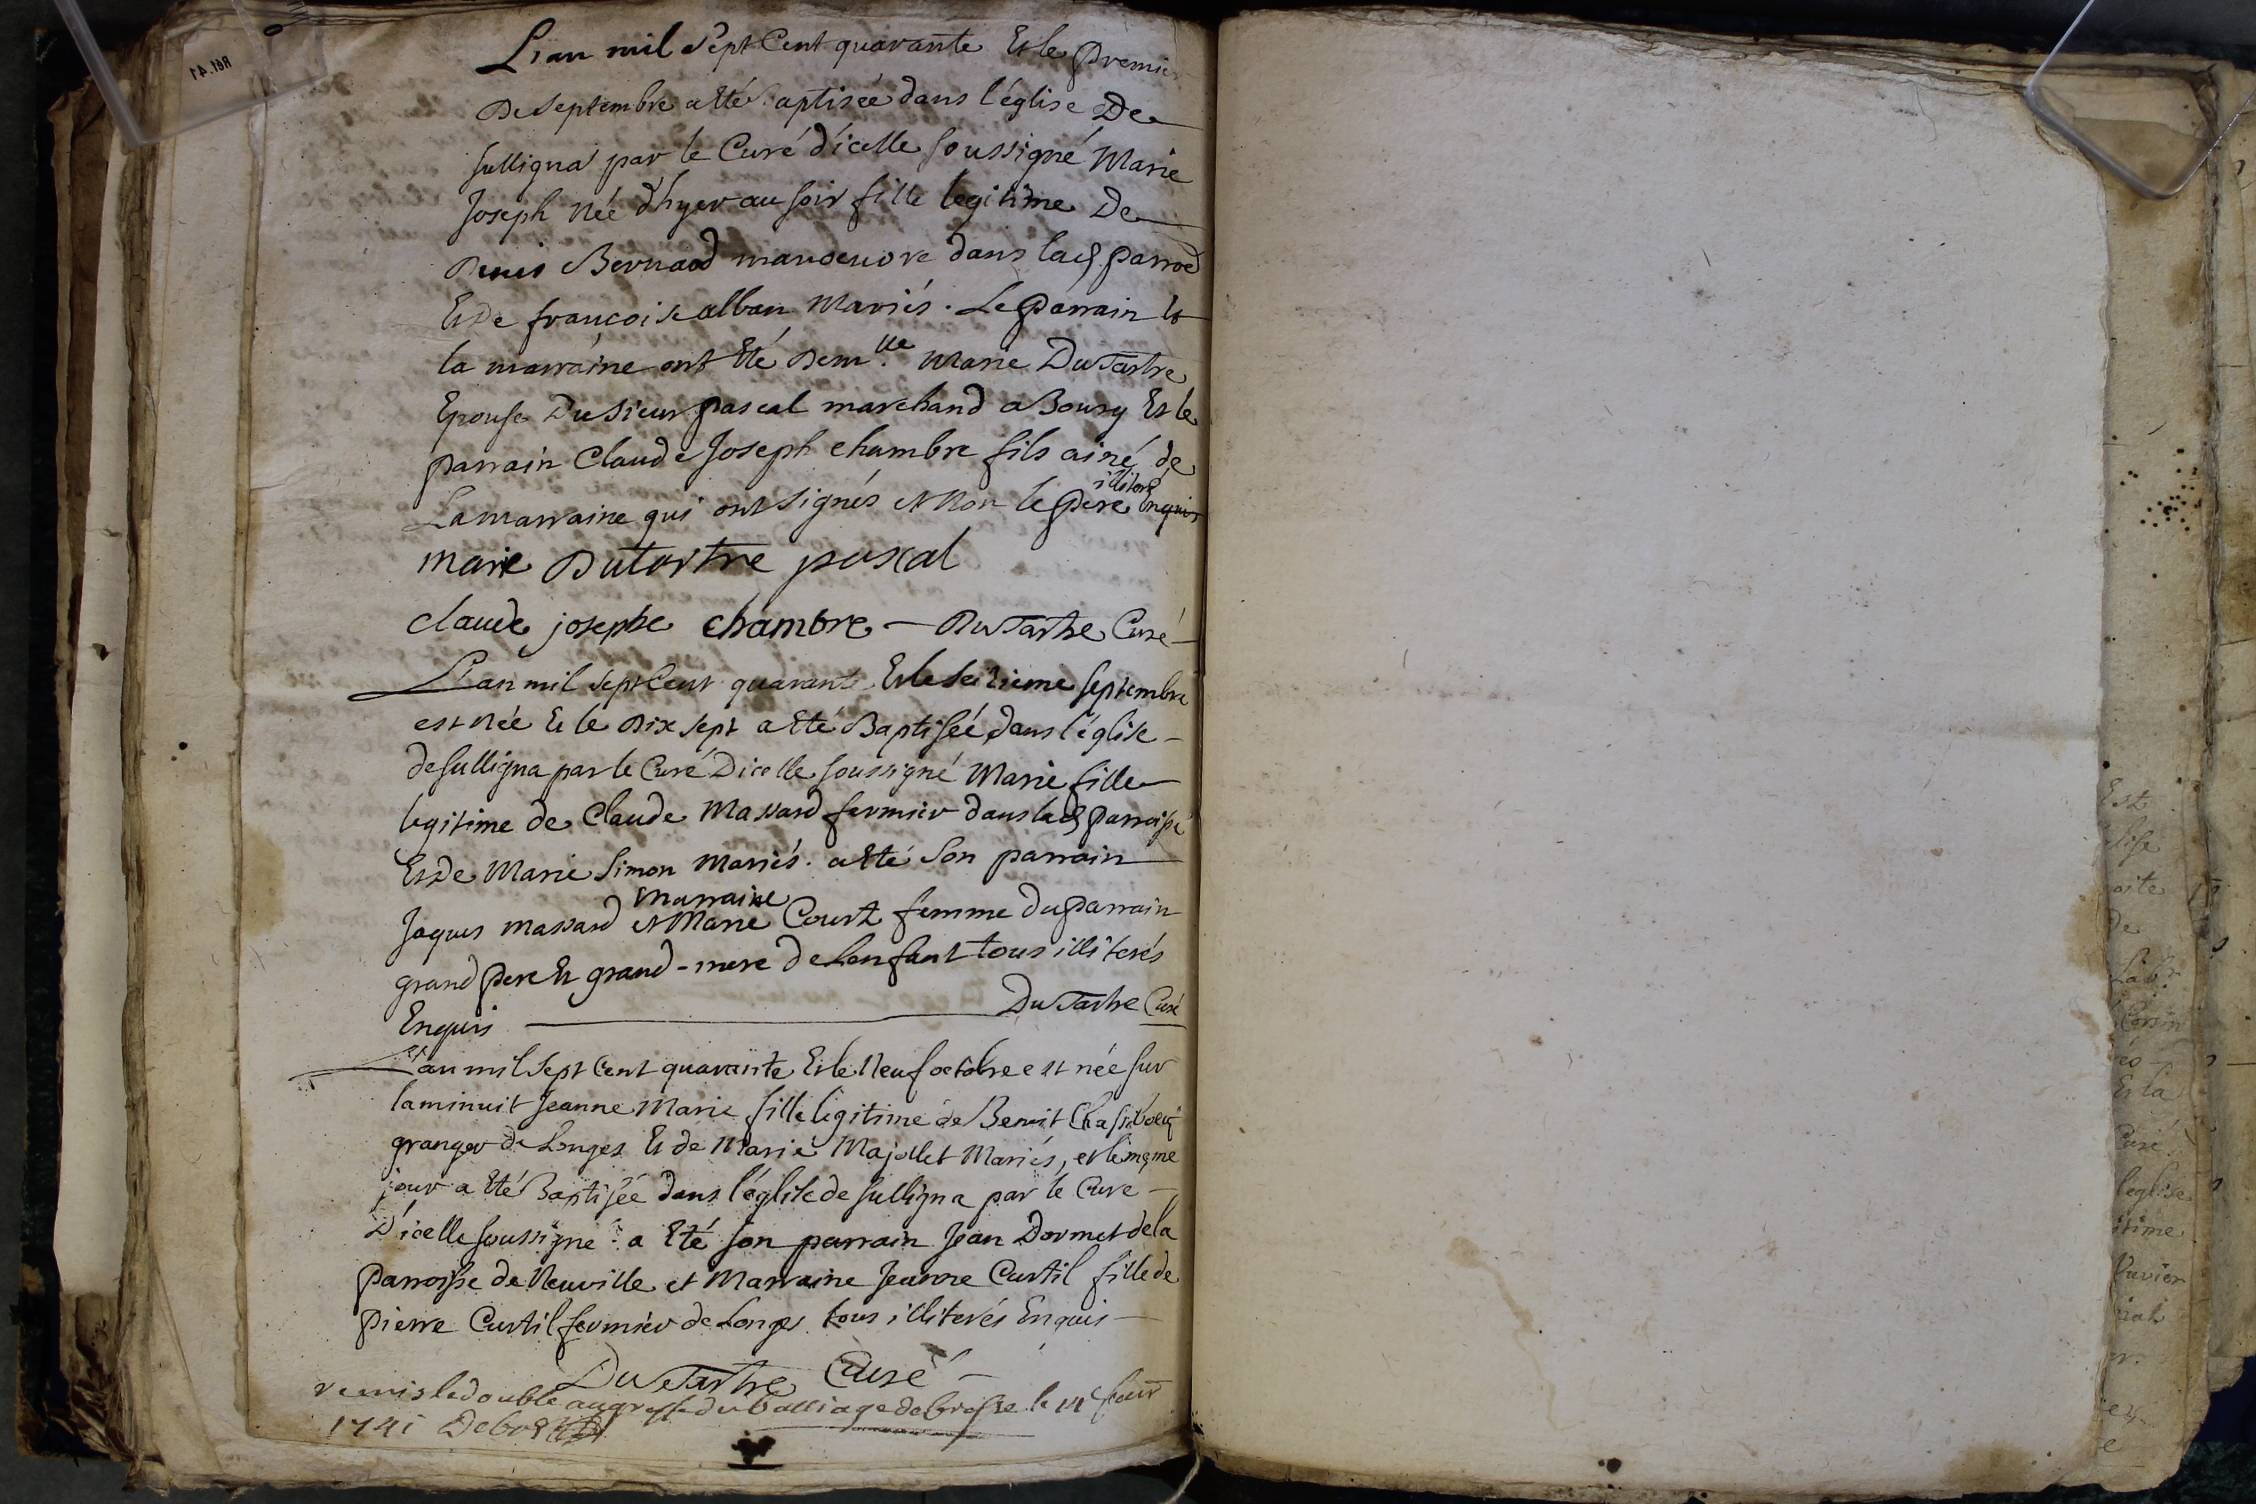 L'an mil sept Cent quarante Et le Premier
De septembre a Eté Baptisée dans l'église De
sulligna par le Curé d'icelle soussigné Marie
Joseph née d'hyer au soir fille legitime De
Denis Bernard manoeuvre dans lad. parroe
Et De francoise alban Mariés. Le Parrain Et
la marraine ont Eté Dem.lle Marie DuTartre
Epouse Du Sieur pascal marchand a Bourg Et le
parrain Claude Joseph chambre fils ainé de
La marraine qui ont signés et Non le Pere illiteré Enquis
marie Dutartre pascal
claude josephe chambre – DuTartre Curé
L'an mil sept Cent quarante Et le seizieme septembre
est née Et le Dix sept a Eté Baptisée dans l'église
de sulligna par le Curé Dicelle soussigné Marie fille
legitime de Claude Massard fermier dans lad parroisse
Et De Marie Simon Mariés. a Eté Son parrain
Marraine
Jaques massard et Marie Court femme du Parrain
grand Pere Et grand-mere de Lenfant tous illiterés
Enquis DuTartre Curé
L'an mil sept Cent quarante Et le Neuf octobre est née sur
la minuit Jeanne Marie fille legitime de Benoit Chassiboeuf
granger de Longes Et de Marie Majollet Mariés, et le meme
jour a Eté Baptisée dans l'église de sulligna par le Cure
D'icelle soussigné. a Eté son parrain Jean Dormet de la
Parroisse de Neuville et Marraine Jeanne Curtil fille de
Pierre Curtil fermier de Longes tous illiterés Enquis
DuTartre Curé
remis le double au greffe du balliage de bresse le
1741
Réf. 41
Est
de
Et la
Curé
l'église